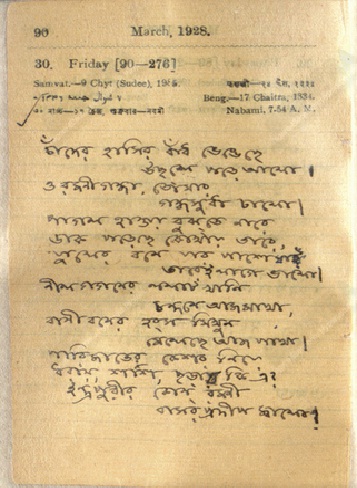 90 March, 1928.
30. Friday [90—276]
Samvat.—9 Chyt (Sudee), 1985.
Beng.—17 Chaitra, 1334.
Nabami, 7-54 A. M.
চাঁদের হাসির বাঁধ ভেঙেছে
উছলে পড়ে আলো।
ও রজনীগন্ধা, তোমার
গন্ধসুধা ঢালো।
পাগল হাওয়া বুঝতে নারে
ডাক পড়েছে কোথায় তারে,
ফুলের বনে যার পাশে যাই
তারেই লাগে ভালো।
নীল গগনের ললাট খানি
চন্দনে আজ মাখা,
বাণীবনের হংস মিথুন
মেলেছে আজ পাখা।
পারিজাতের কেশর নিয়ে
ধরায়, শশি, ছড়াও কি এ?
ইন্দ্রপুরীর কোন্ রমণী
বাসর প্রদীপ জ্বালো?